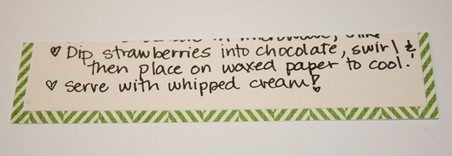 ♡ Dip strawberries into chocolate, swirl &
then place on waxed paper to cool!
♡ serve with whipped cream!